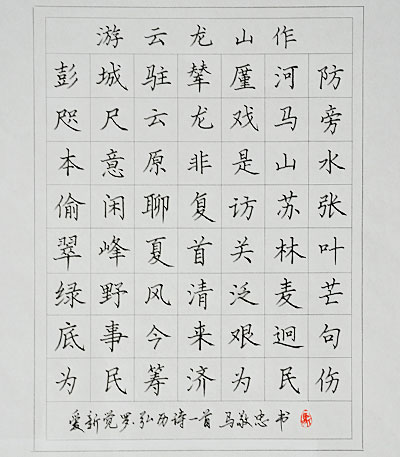 游云龙山作
彭城驻辇厪河防
咫尺云龙戏马旁
本意原非是山水
偷闲聊复访苏张
翠峰夏首关林叶
绿野风清泛麦芒
底事今来艰迥句
为民筹济为民伤
爱新觉罗.弘历诗一首 马敬忠书